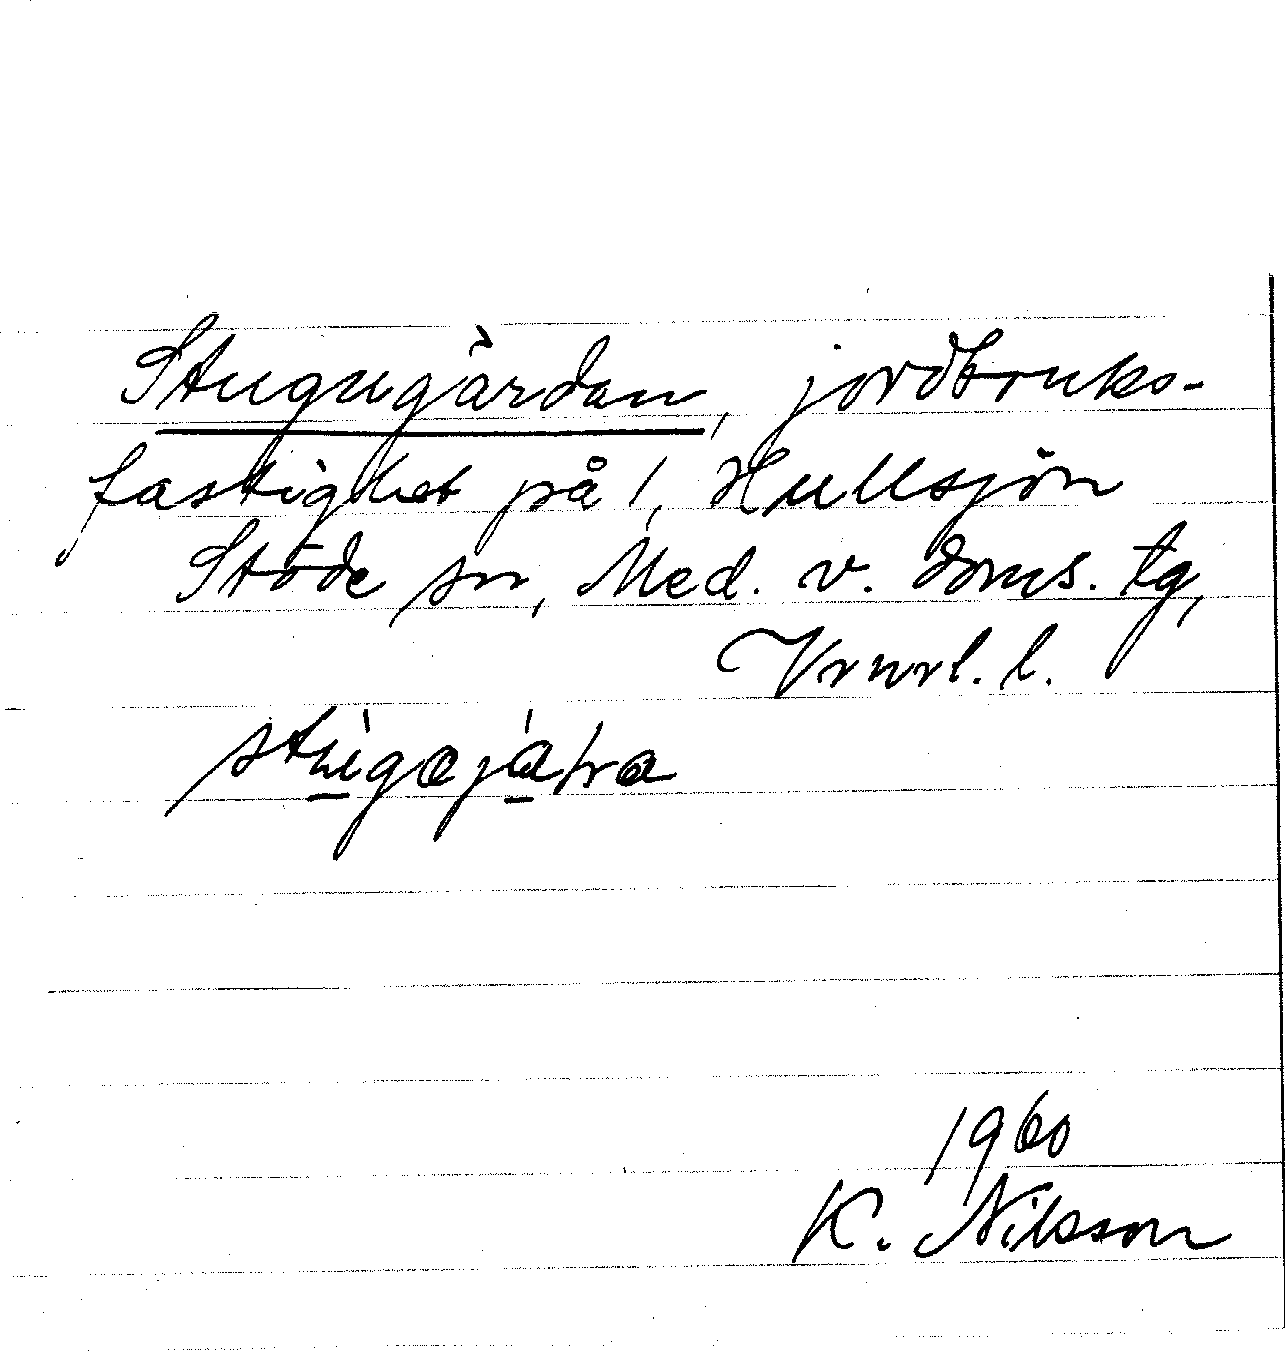 Stugugårdan, jordbruks-
fastighet på 1, Hullsjön
Stöde sn, Med. v. doms. tg,
Vrnrl. l.
1960
K. Nilsson